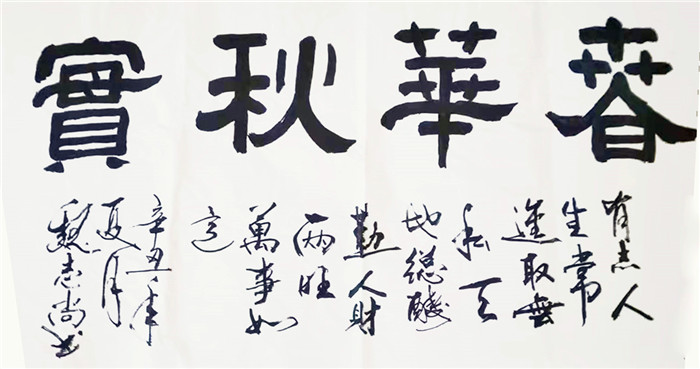 春華秋實
有志人
生常
進取無
私天
地總酬
勤人財
兩旺
萬事如
意
辛丑年
夏月
魏志尚